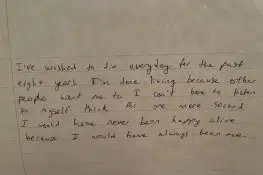 I've wished to die everyday for the past
eight years. I'm done living because other
people want me to I can't bare to listen
to myself think for one more second
I would have never been happy alive
because I would have always been me.